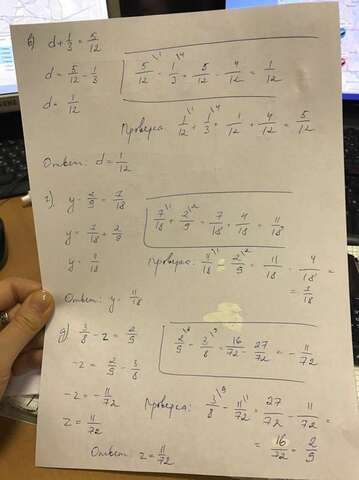 в) d + 1/3 = 5/12
d = 5/12 - 1/3
5/12 \1 - 1/3 \4 = 5/12 - 4/12 = 1/12
d = 1/12
Проверка: 1/12 \1 + 1/3 \4 = 1/12 + 4/12 = 5/12
Ответ: d = 1/12
г) y - 2/9 = 7/18
y = 7/18 + 2/9
7/18 \1 + 2/9 \2 = 7/18 + 4/18 = 11/18
Проверка: 11/18 \1 - 2/9 \2 = 11/18 - 4/18 =
= 7/18
Ответ: y = 11/18
д) 3/8 - z = 2/9
-z = 2/9 - 3/8
2/9 \8 - 3/8 \9 = 16/72 - 27/72 = - 11/72
-z = - 11/72
z = 11/72
Проверка: 3/8 \9 - 11/72 \1 = 27/72 - 11/72 =
= 16/72 = 2/9
Ответ: z = 11/72